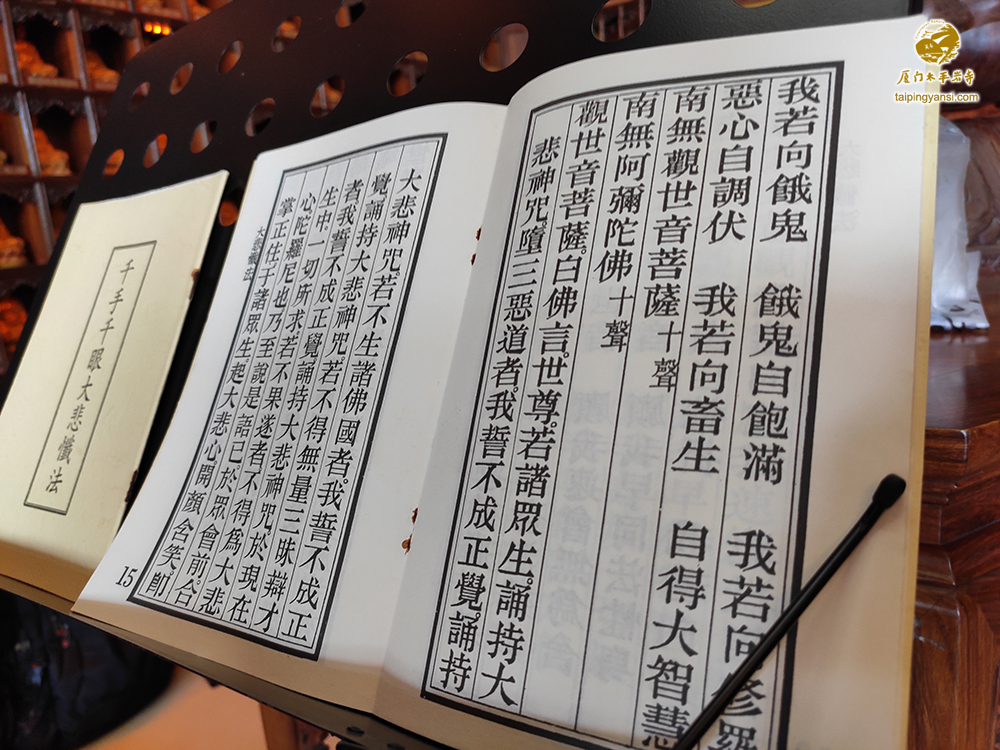 厦门太平岩寺
taipingyansi.com
我若向餓鬼　餓鬼自飽滿　我若向修羅
惡心自調伏　我若向畜生　自得大智慧
南無觀世音菩薩十聲
南無阿彌陀佛十聲
觀世音菩薩。白佛言。世尊。若諸眾生。誦持大
悲神咒。墮三惡道者。我誓不成正覺。誦持
大悲神咒。若不生諸佛國者。我誓不成正
覺。誦持大悲神咒。若不得無量三昧辯才
者。我誓不成正覺。誦持大悲神咒。於現在
生中。一切所求。若不果遂者。不得為大悲
心陀羅尼也。乃至說是語已。於眾會前。合
掌正住。于諸眾生。起大悲心。開顏含笑。即
大悲懺法
15
千手千眼大悲懺法